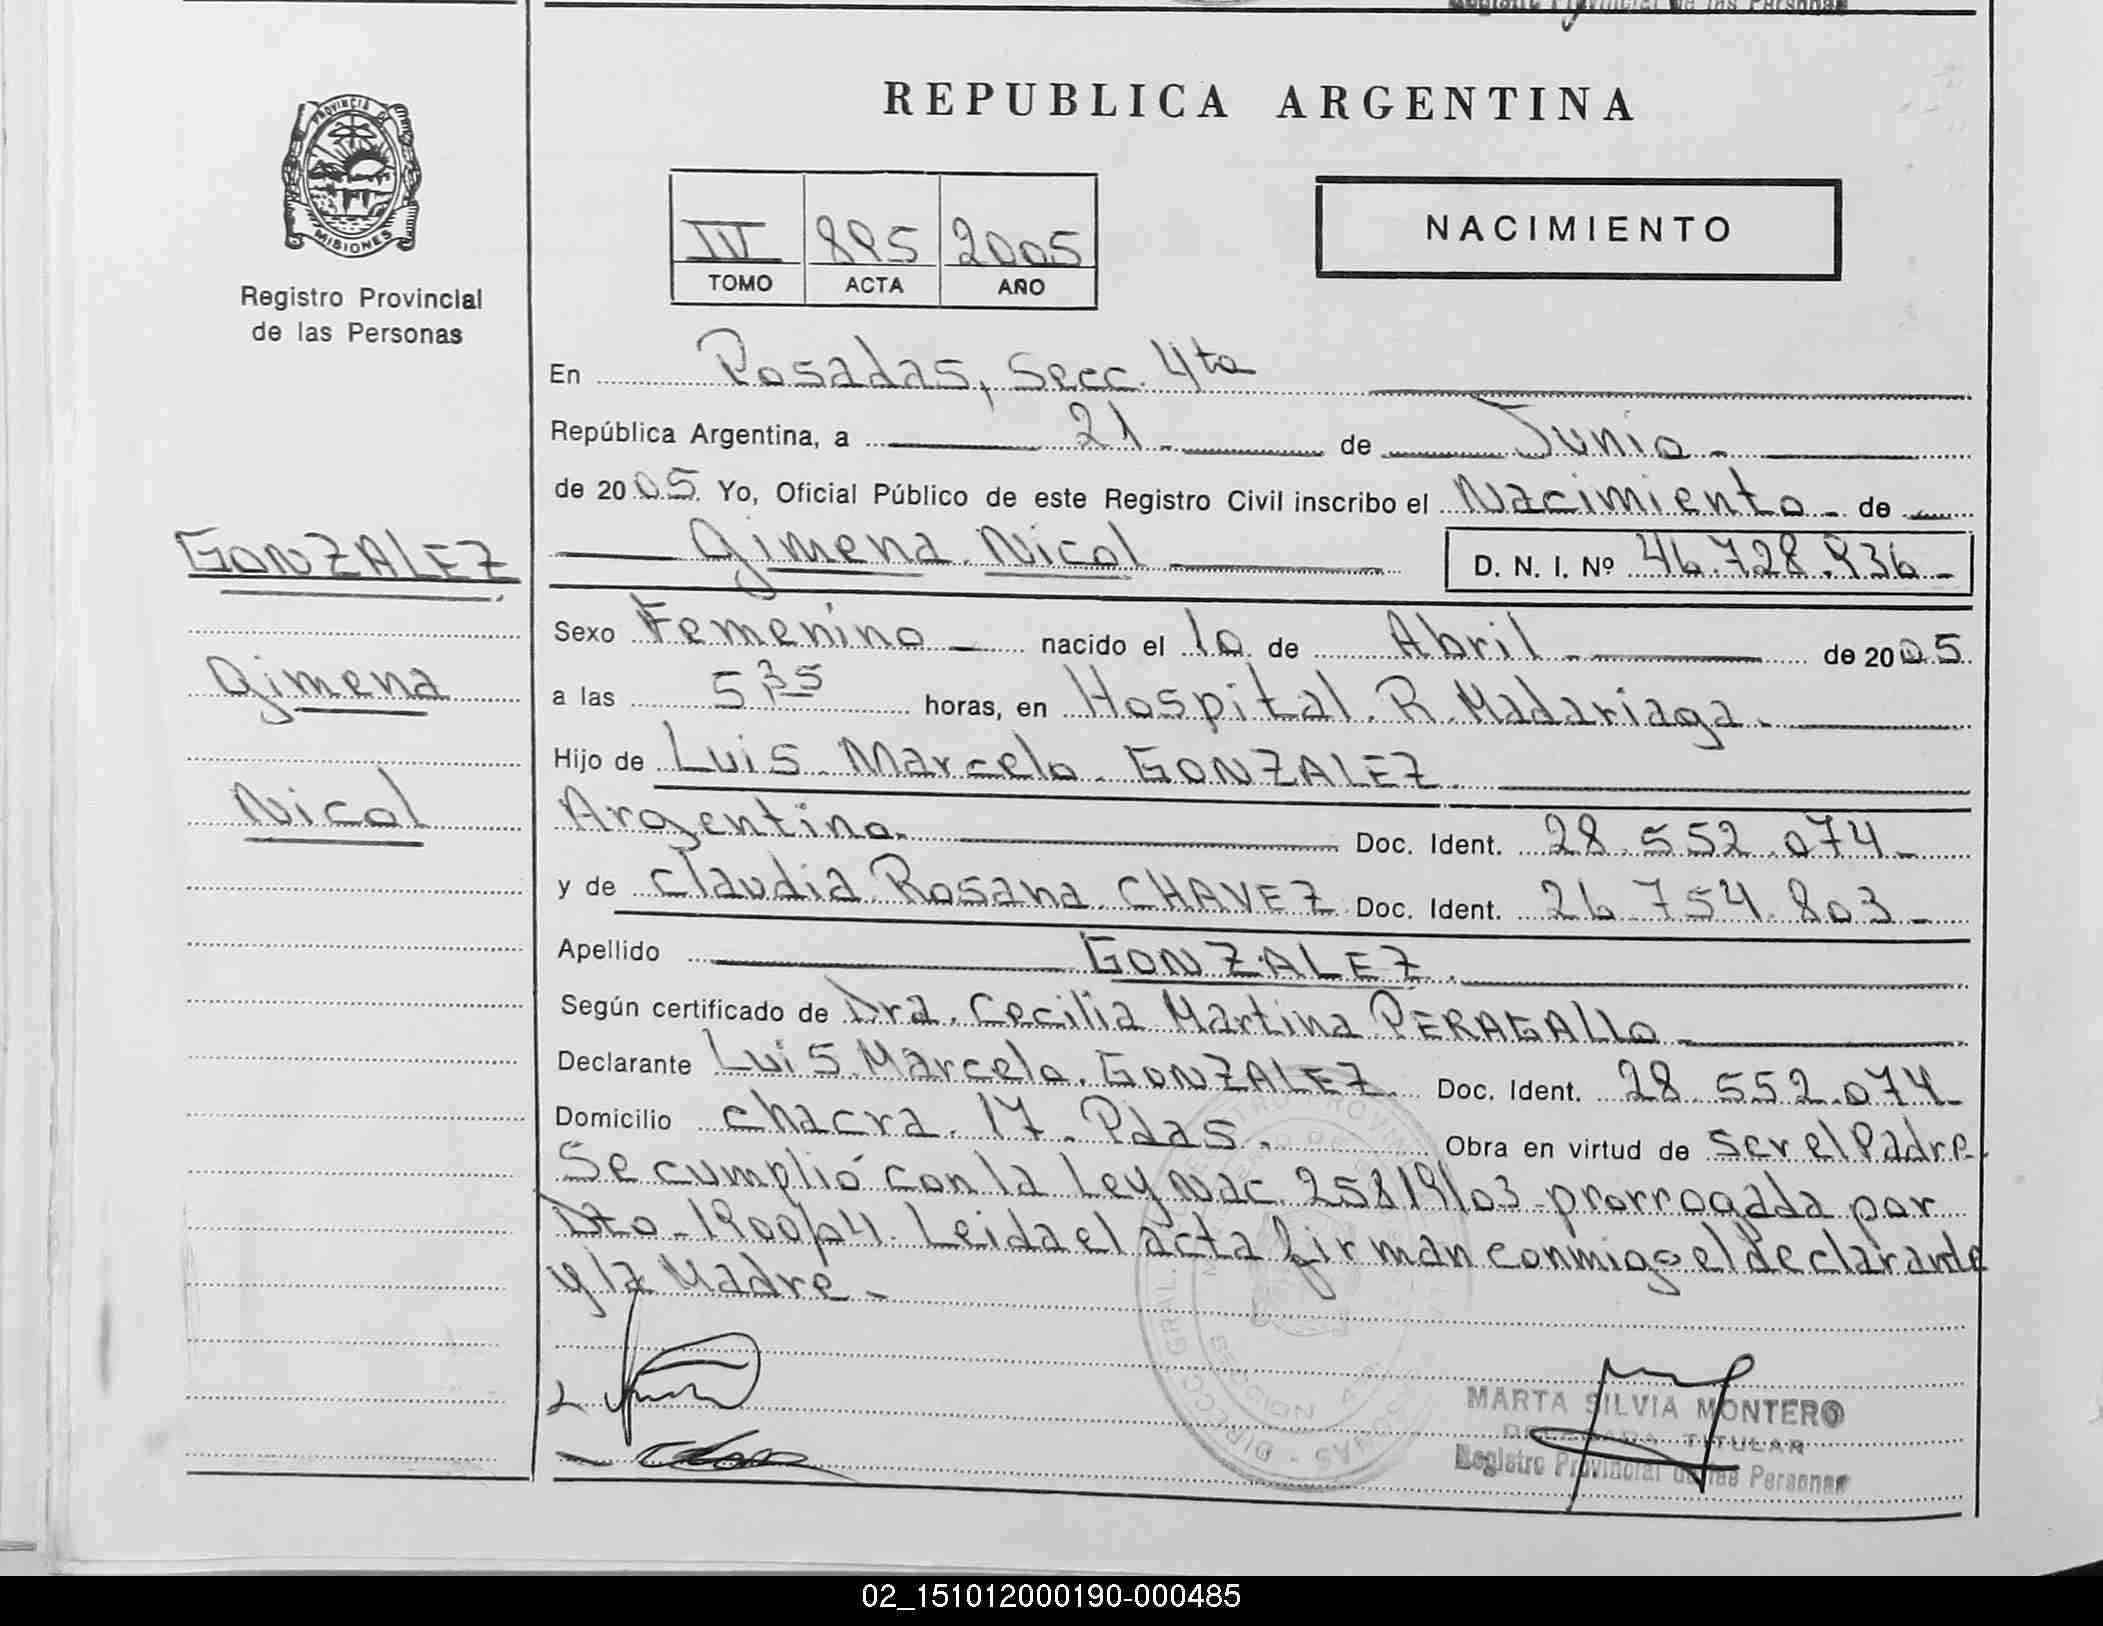 PROVINCIA DE
MISIONES
Registro Provincial
de las Personas
GONZALEZ
Gimena
Nicol
Registro Provincial de las Personas
REPUBLICA ARGENTINA
IV 895 2005
TOMO ACTA AÑO
NACIMIENTO
En Posadas, Secc. 4ta
República Argentina, a 21 de Junio
de 2005 Yo, Oficial Público de este Registro Civil inscribo el Nacimiento de
Gimena Nicol D. N. I. Nº 46.728.936
Sexo Femenino nacido el 10 de Abril de 2005
a las 5,35 horas, en Hospital R. Madariaga.
Hijo de Luis Marcelo GONZALEZ
Argentino Doc. Ident. 28.552.074
y de Claudia Rosana CHAVEZ Doc. Ident. 26.754.803
Apellido GONZALEZ
Según certificado de Dra. Cecilia Martina PERAGALLO
Declarante Luis Marcelo GONZALEZ Doc. Ident. 28.552.074
Domicilio chacra 17 Pdas. Obra en virtud de ser el Padre.
Se cumplió con la Ley Nac. 25819/03 prorrogada por
Dto 1900/04. Leida el acta firman conmigo el declarante
y la Madre.
MARTA SILVIA MONTERO
DELEGADA TITULAR
Registro Provincial de las Personas
02_151012000190-000485